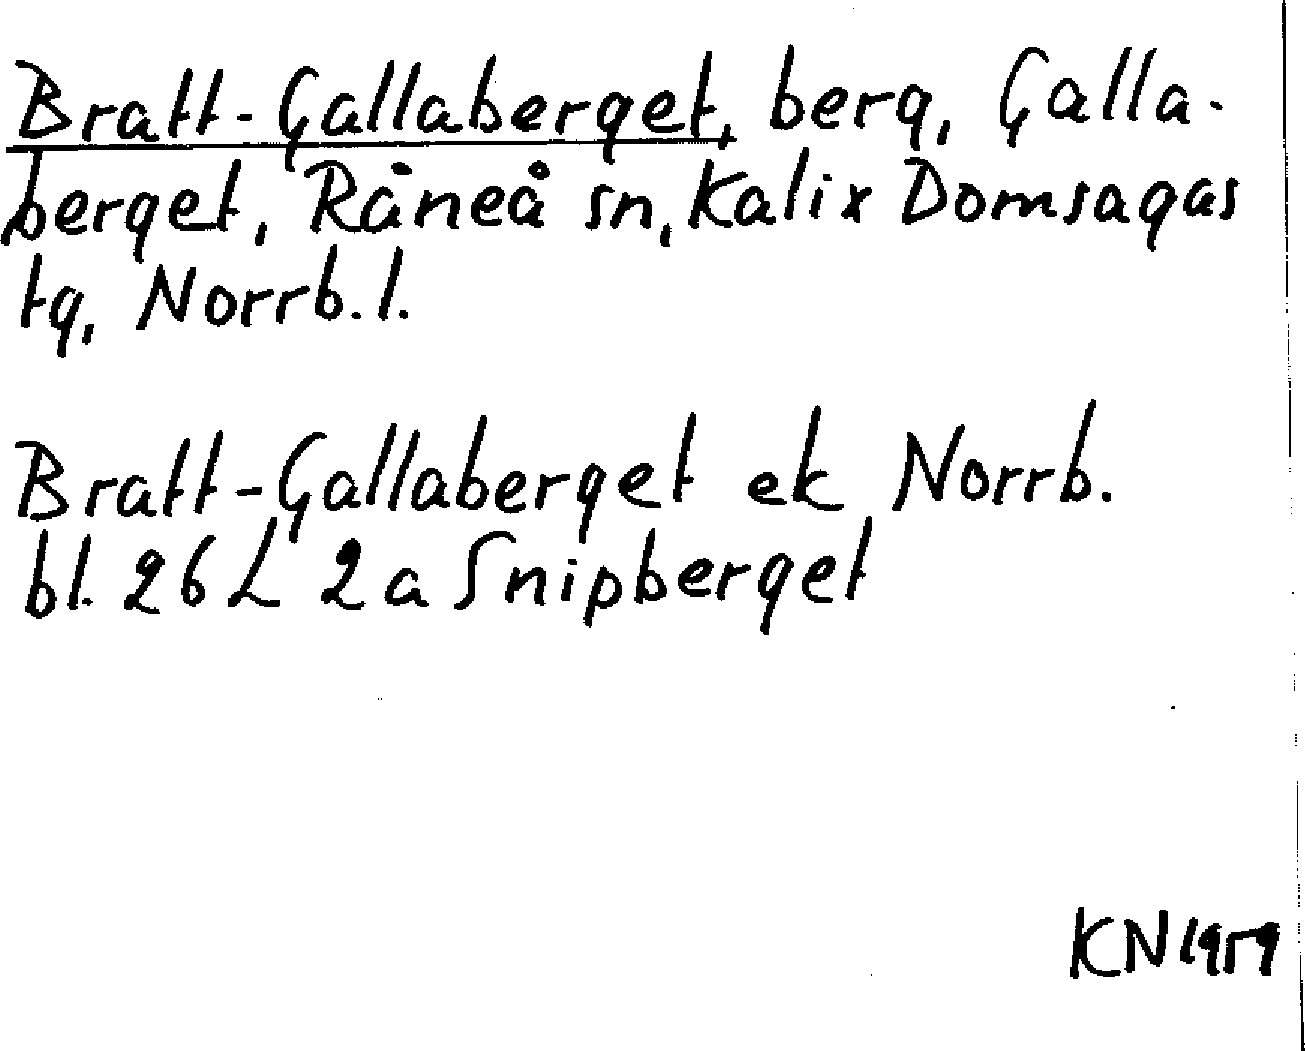 Bratt-Gallaberget, berg, Galla-
berget, Råneå sn, Kalix Domsagas
tg, Norrb. l.
Bratt-Gallaberget ek Norrb.
bl. 26 L 2 a Snipberget
KN 1959